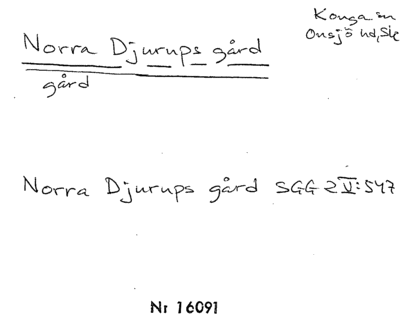 Konga sn
Onsjö hd, Sk
Norra Djurups gård
gård
Norra Djurups gård SGG 2 V:547
Nr 16091